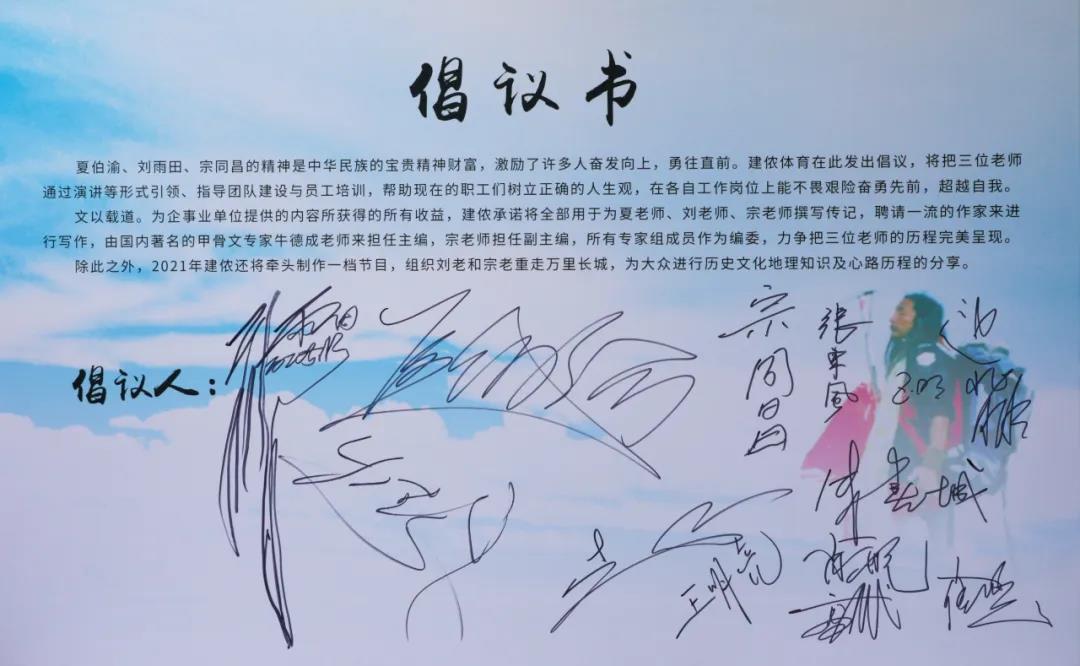 倡议书
夏伯渝、刘雨田、宗同昌的精神是中华民族的宝贵精神财富，激励了许多人奋发向上，勇往直前。建侬体育在此发出倡议，将把三位老师
通过演讲等形式引领、指导团队建设与员工培训，帮助现在的职工们树立正确的人生观，在各自工作岗位上能不畏艰险奋勇先前，超越自我。
文以载道。为企事业单位提供的内容所获得的所有收益，建侬承诺将全部用于为夏老师、刘老师、宗老师撰写传记，聘请一流的作家来进
行写作，由国内著名的甲骨文专家牛德成老师来担任主编，宗老师担任副主编，所有专家组成员作为编委，力争把三位老师的历程完美呈现。
除此之外，2021年建侬还将牵头制作一档节目，组织刘老和宗老重走万里长城，为大众进行历史文化地理知识及心路历程的分享。
倡议人：
宗同昌
张东风